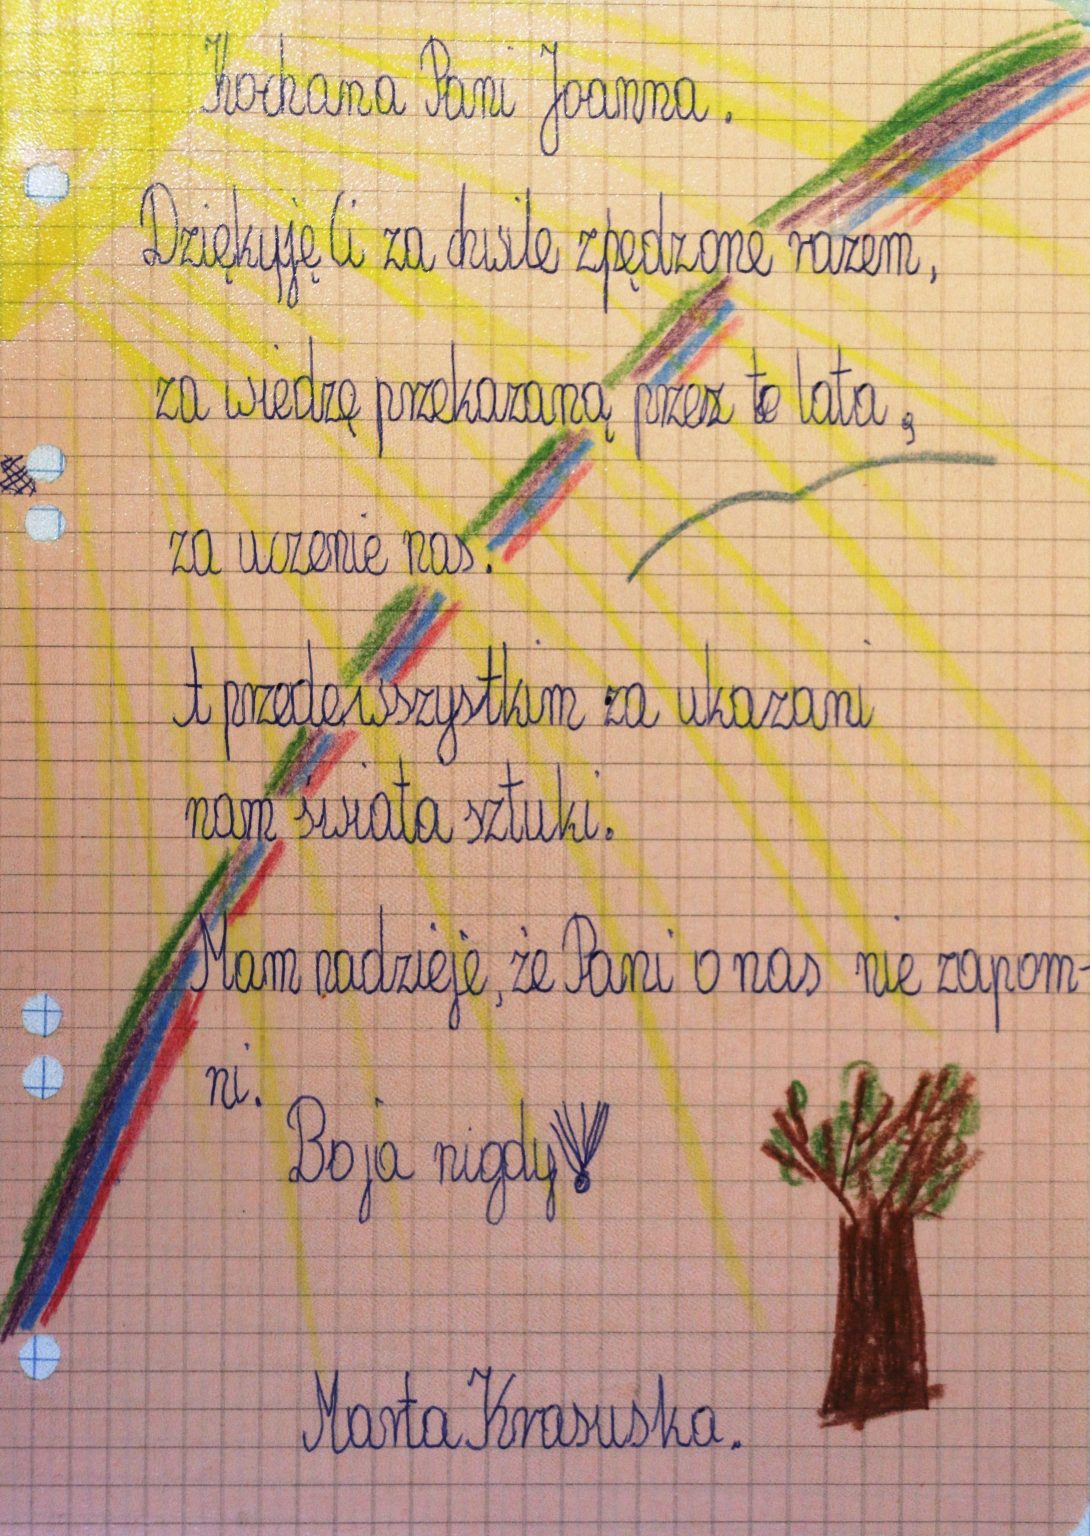 Kochana Pani Joanna.
Dziękuję Ci za chwile zpędzone razem,
za wiedzę przekazaną przez te lata,
za uczenie nas.
A przedewszystkim za ukazani
nam świata sztuki.
Mam nadzieje, że Pani o nas nie zapom-
ni.
Bo ja nigdy!
Marta Krasuska.